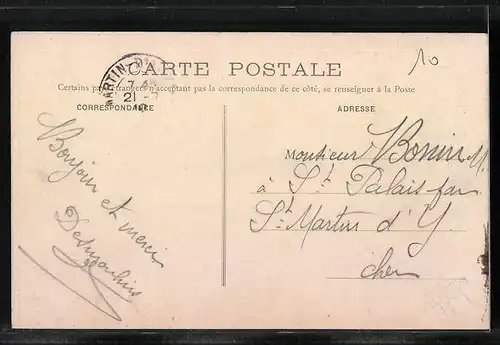 10
CARTE POSTALE
Certains pays étrangers n'acceptant pas la correspondance de ce côté, se renseigner à la Poste
MARTIN-D'
7
21
CORRESPONDANCE
ADRESSE
Bonjour et merci
Desmoulins
Monsieur Bonin M.
à St Palais par
St Martin d'Y.
Cher